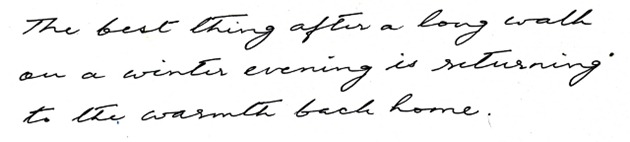 The best thing after a long walk
on a winter evening is returning
to the warmth back home.